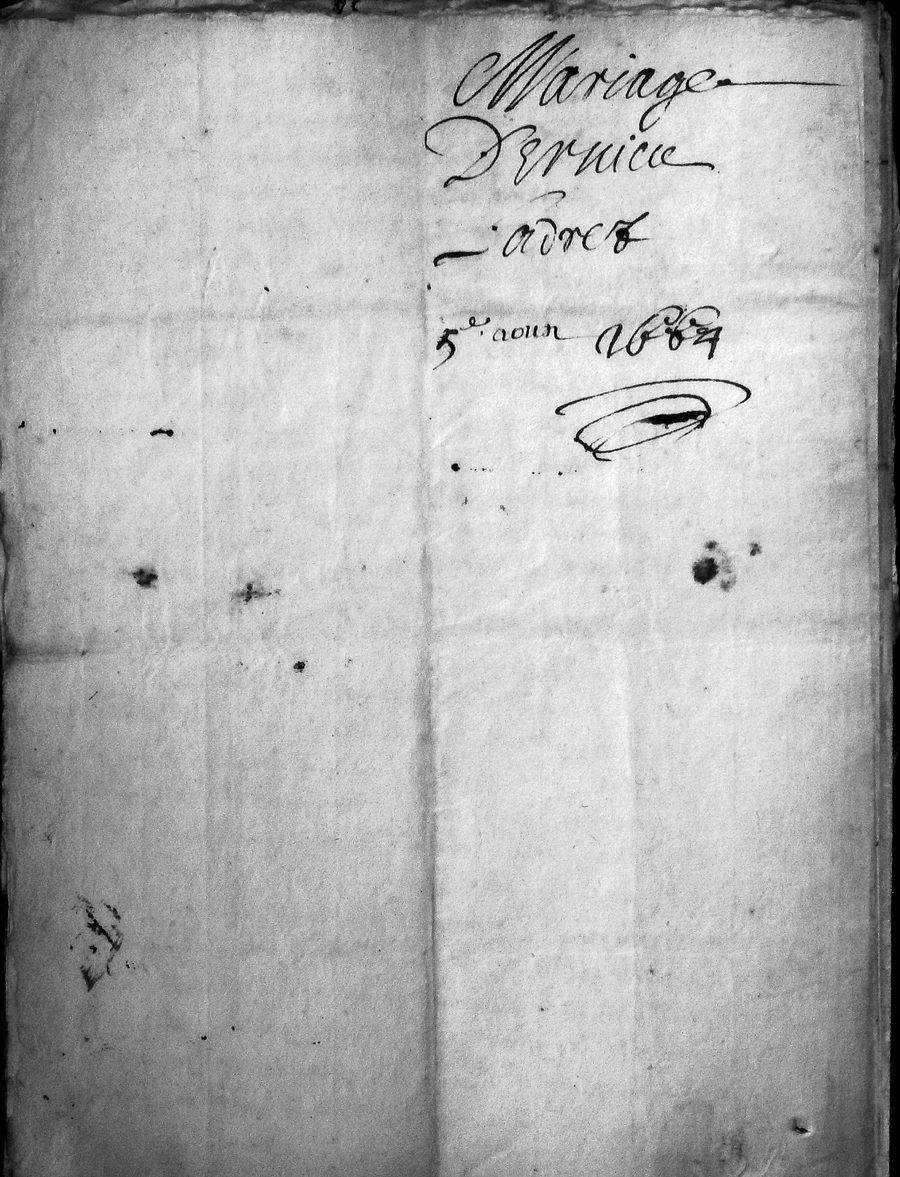 Mariage
Deruieu
Ladret
5e aoust 1664